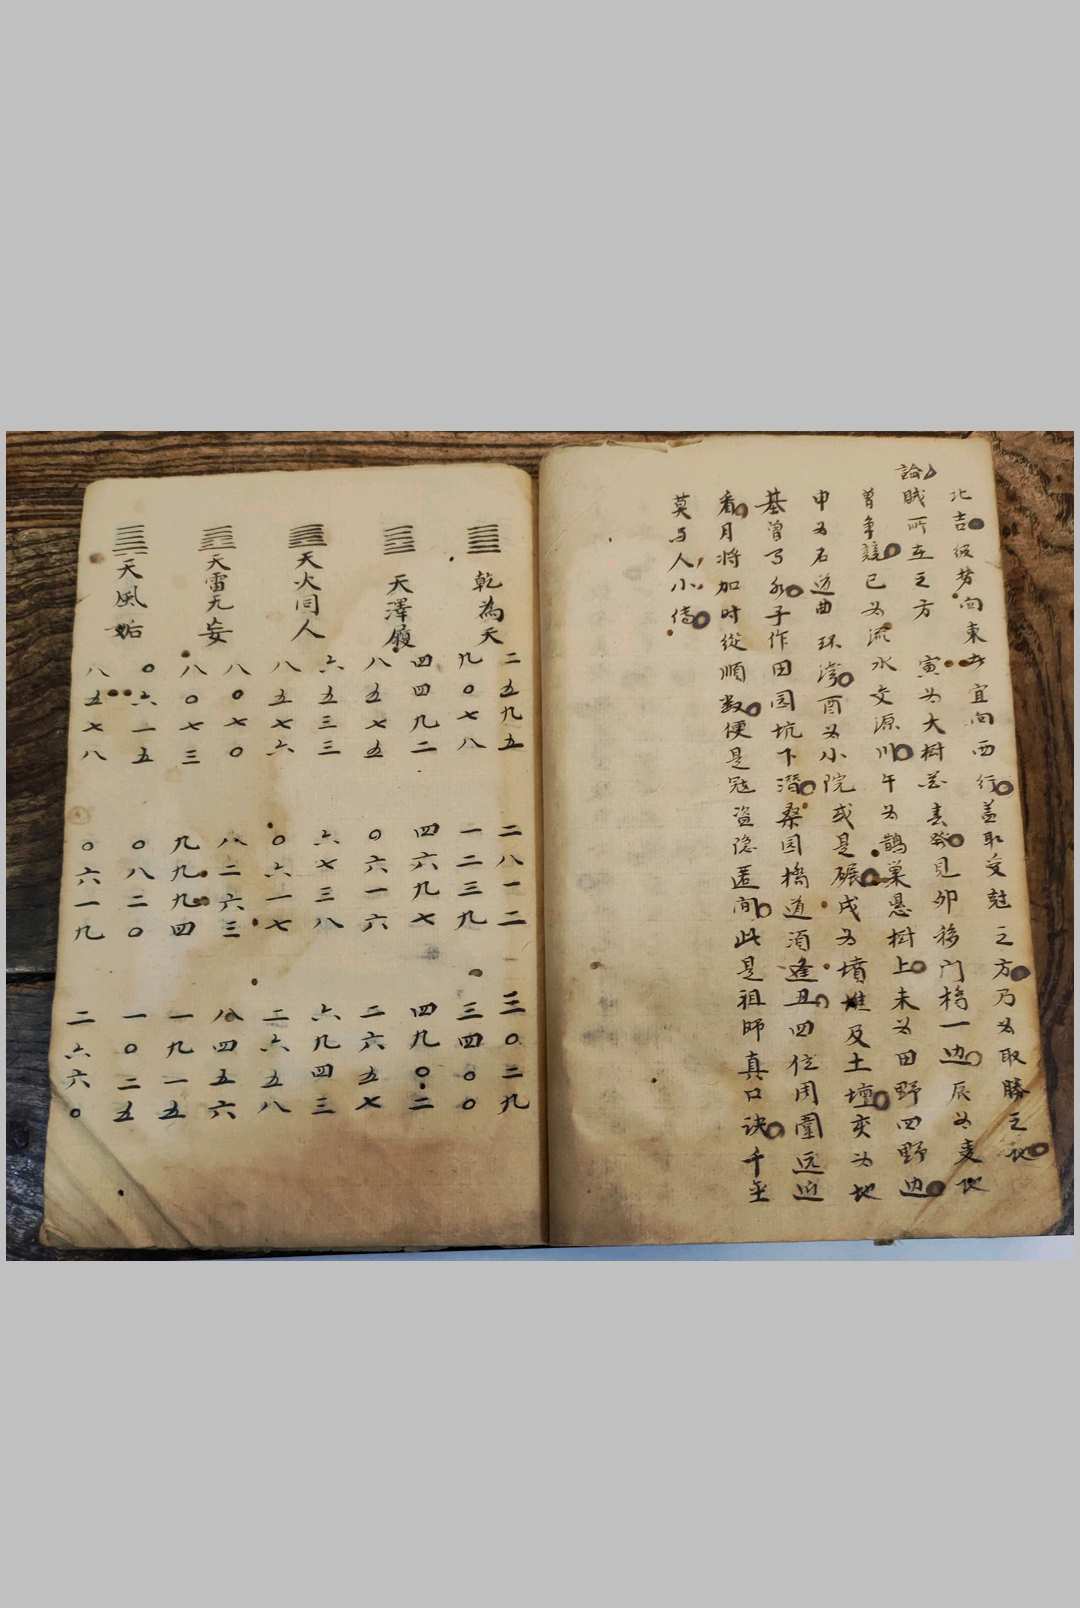 北吉假势向東去宜向西行盖取受尅之方乃为取勝之地
論賊所在之方 寅为大树 発見卯移门橋一边辰为麦地
曾争競已为流水交源川午为鵲巢悬树上未为田野四野边
申为石边曲环湾酉为小院或是碾戌为墳堆及土壇亥为地
基曾与水子作田园坑下潜桑园橋道须逢丑四位周圍远近
看月将加时從順数便是冦盗隐匿间此是祖師真口诀千金
莫与人小传
乾為天
二五九五 二八一二 三〇二九
九〇七八 一二三九 三四〇〇
天澤履
四四九二 四六九七 四九〇二
八五七五 〇六一六 二六五七
天火同人
六五三三 六七三八 六九四三
八五七六 〇六一七 二六五八
天雷无妄
八〇七〇 八二六三 八四五六
八〇七三 九九九四 一九一五
天風姤
〇六一五 〇八二〇 一〇二五
八五七八 〇六一九 二六六〇